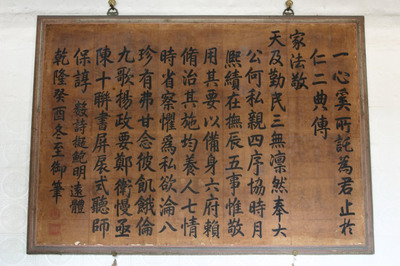 一心奚所託為君止於
仁二典傳
家法敬
天及勤民三無凛然奉大
公何私親四序協時月
熈績在撫辰五事惟敬
用其要以備身六府賴
脩治其施均養人七情
時省察懼為私欲淪八
珍有弗甘念彼飢餓倫
九歌揚政要鄭衛慢亟
陳十聯書屏扆式聽師
保諄 數詩擬鮑明遠體
乾隆癸酉冬至御筆